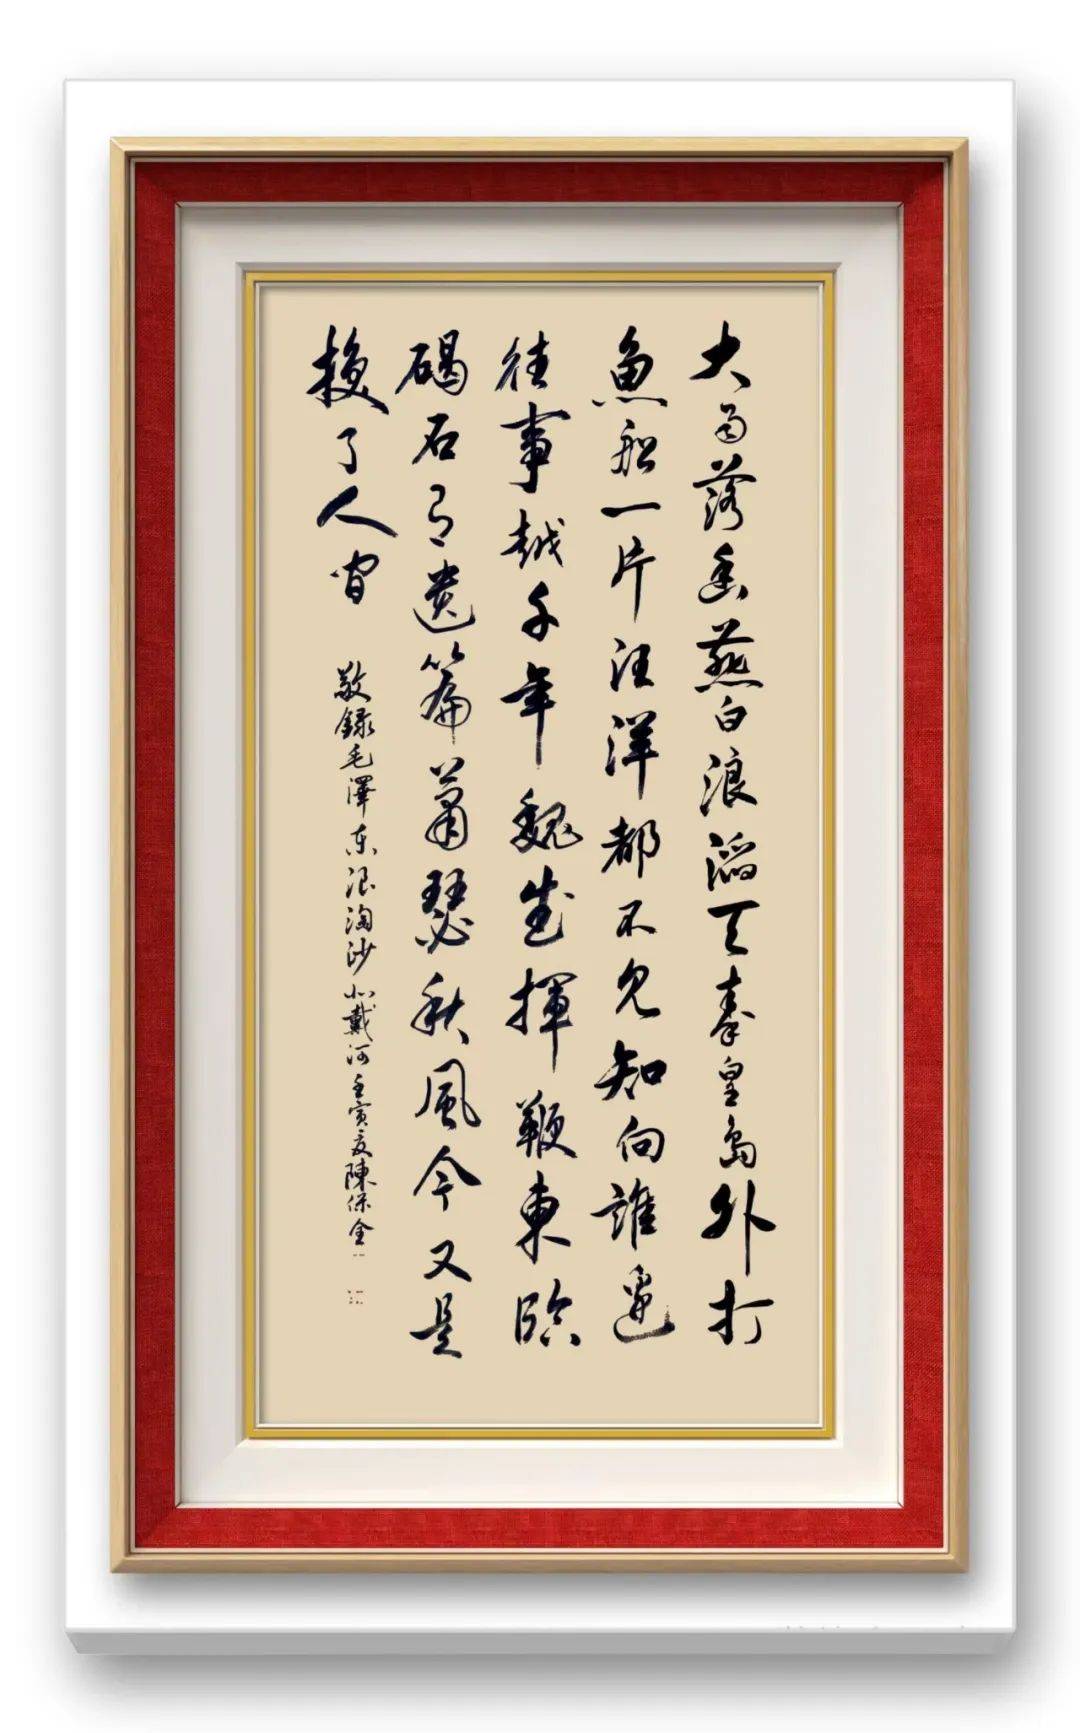 大雨落幽燕白浪滔天秦皇島外打
魚船一片汪洋都不見知向誰邊
往事越千年魏武揮鞭東臨
碣石有遺篇蕭瑟秋風今又是
換了人间
敬録毛澤东浪淘沙北戴河壬寅夏陳保全